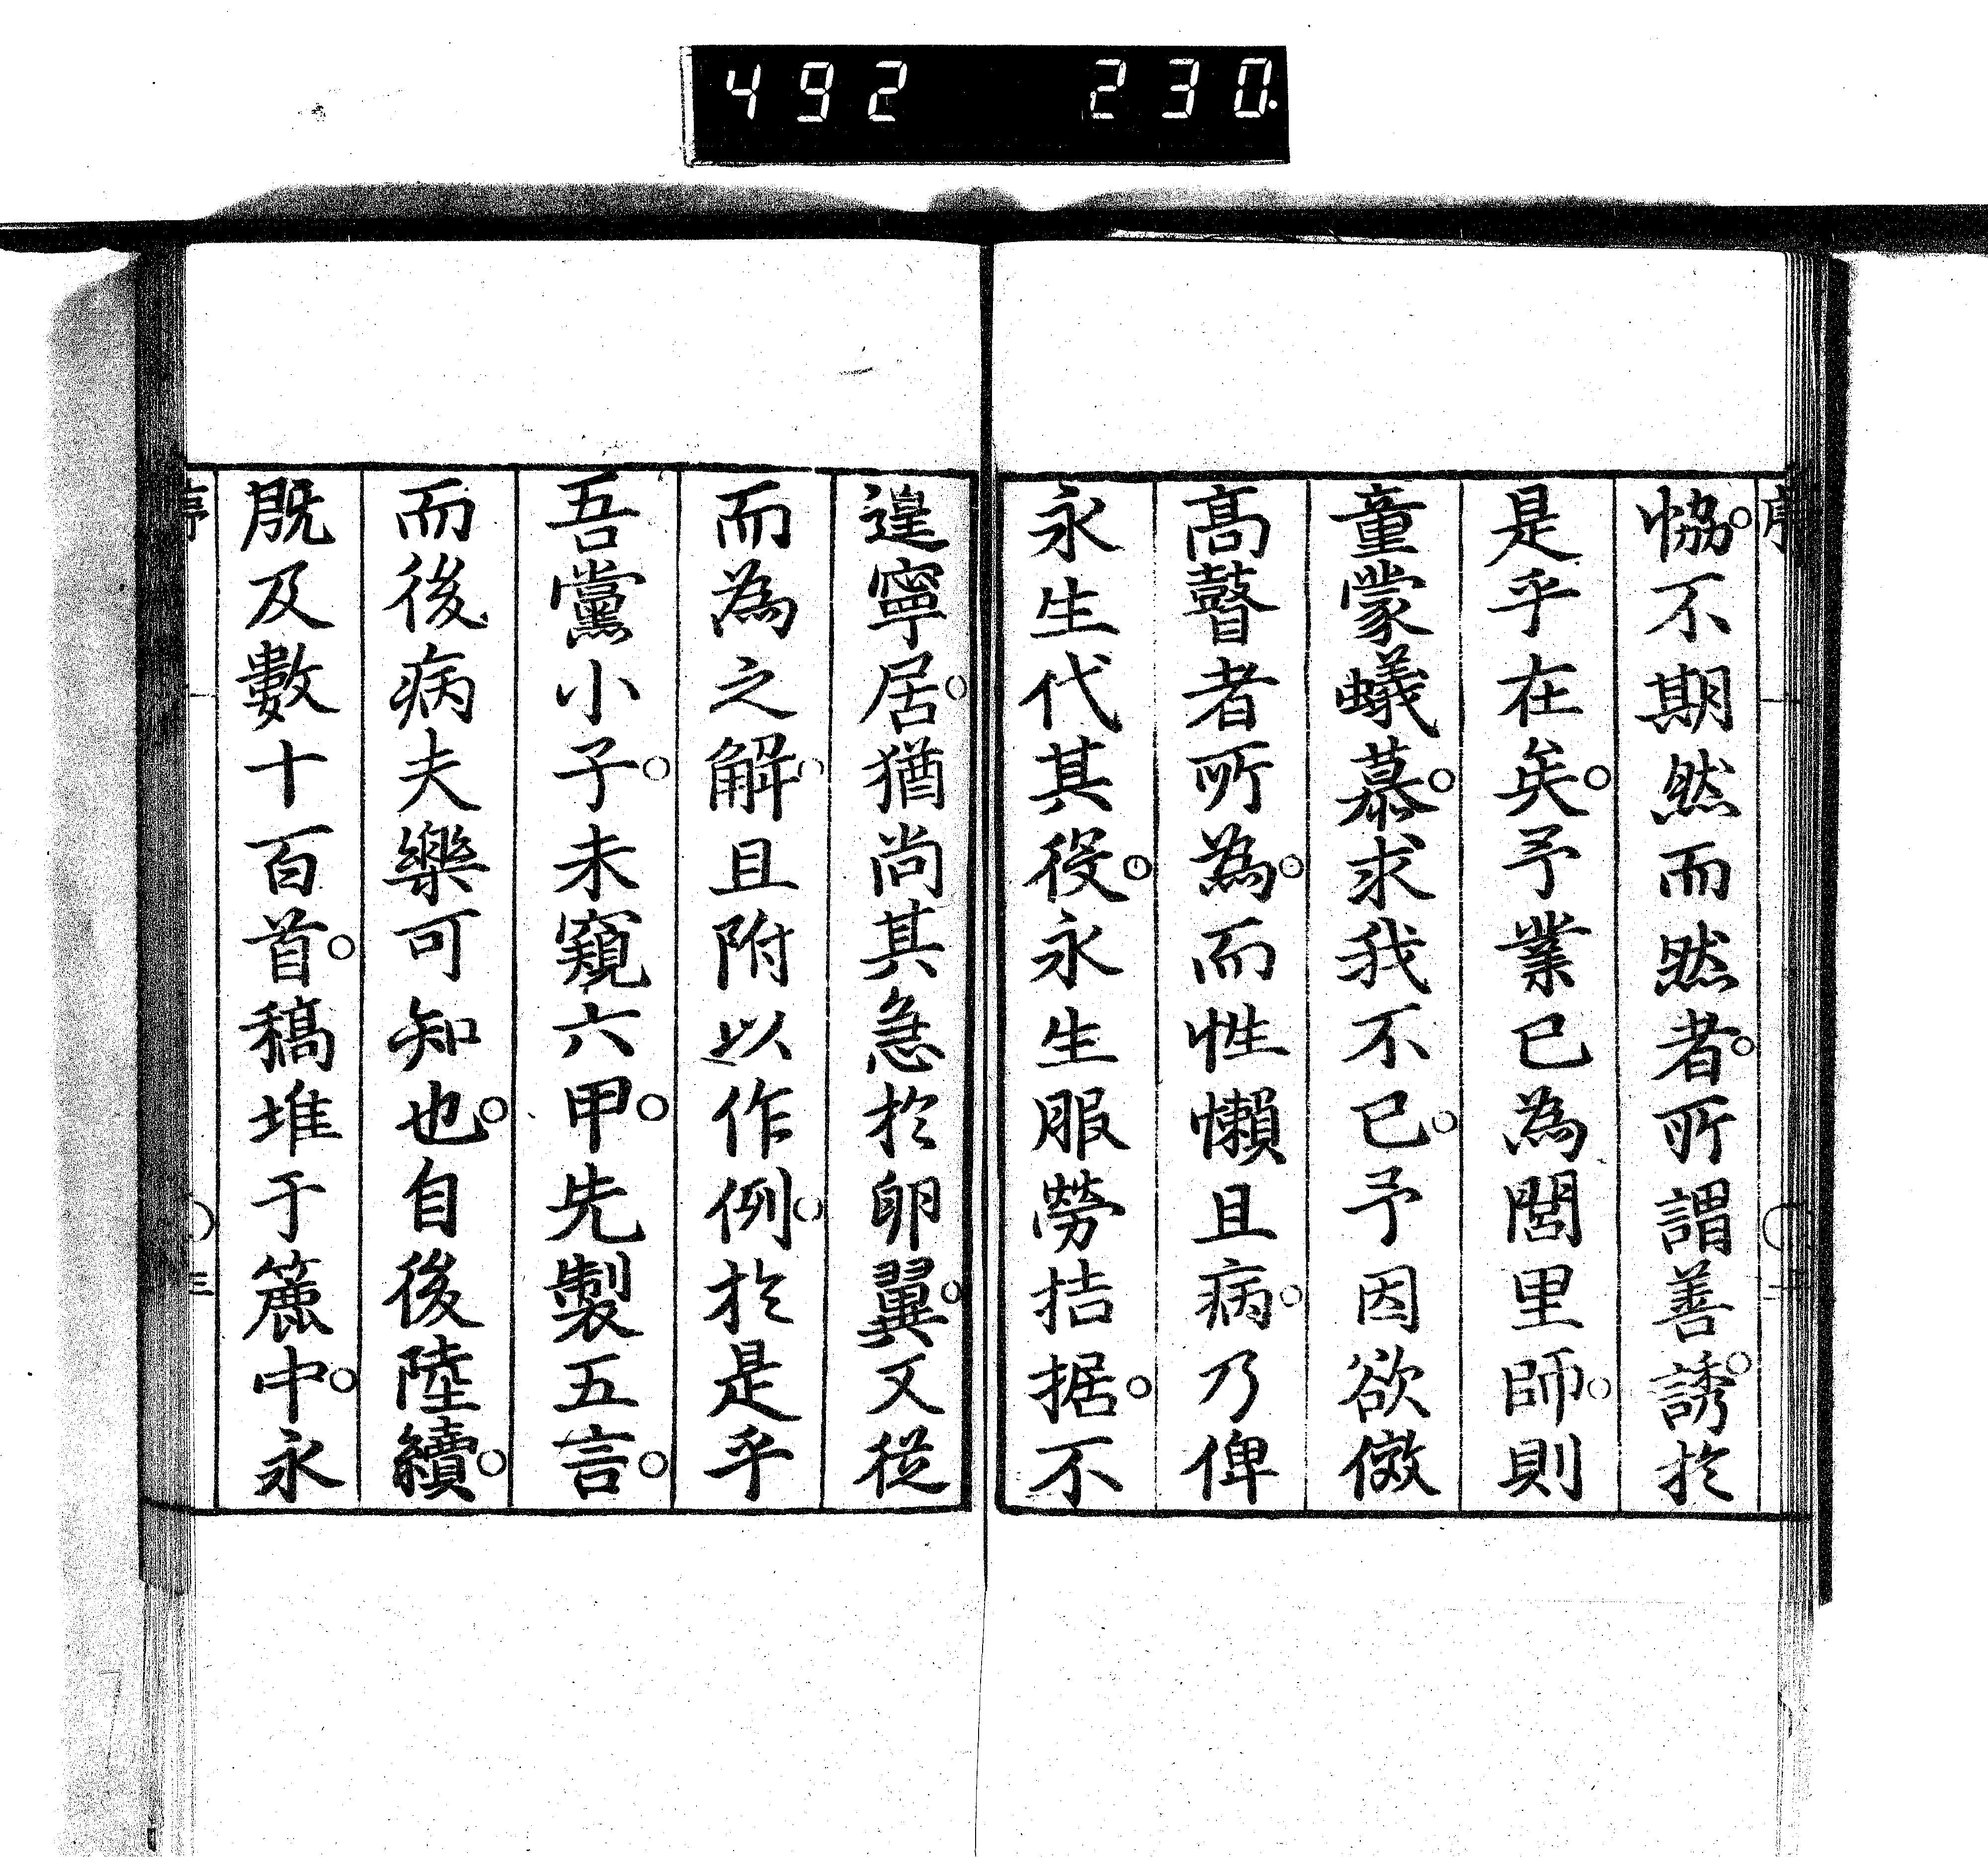 492 230.
恊○不期然而然者○所謂善誘○於
是乎在矣○予業已為閭里師○則
童蒙蟻慕○求我不已○予因欲傚
高瞽者所為○而性懶且病○乃俾
永生代其役○永生服勞拮据○不
遑寧居○猶尚其急於卵翼○又從
而為之解○且附以作例○於是乎
吾黨小子○未窺六甲○先製五言○
而後病夫樂可知也○自後陸續○
既及數十百首○稿堆于簏中○永